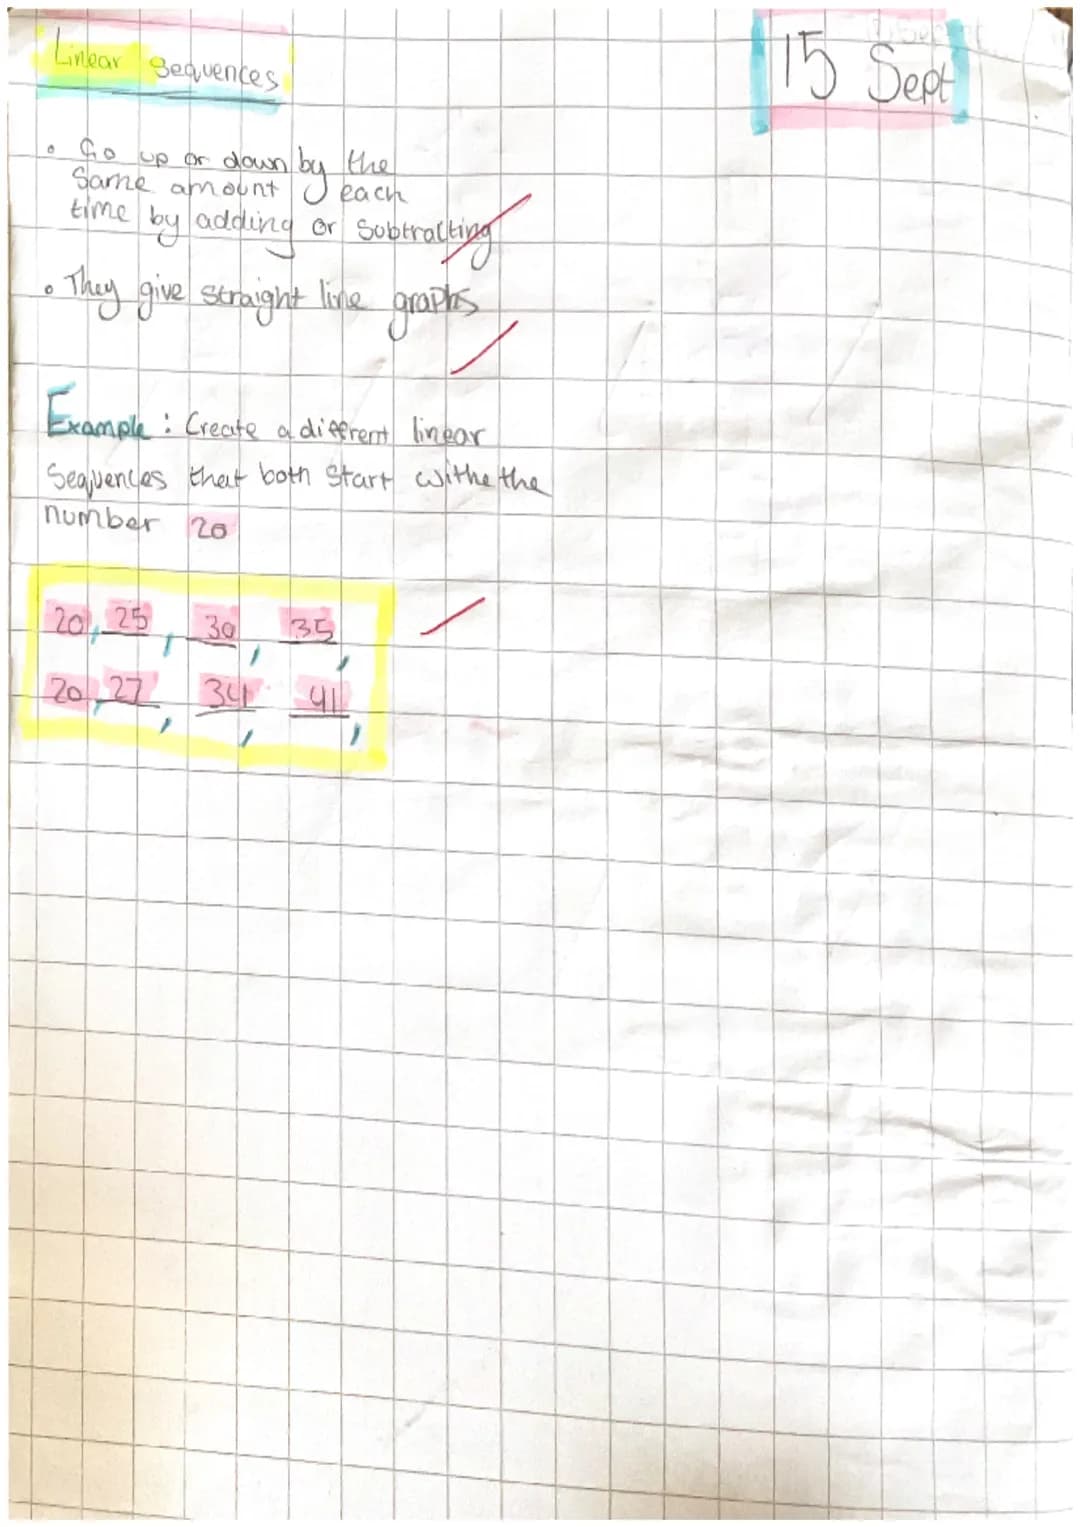 Linear Sequences
15 Sept
• Go up or down by the
Same amount each
time by adding or Subtracting
• They give straight line graphs
Example: Create a different linear
Sequences that both Start withe the
number 20
20, 25, 30, 35,
20, 27, 34, 41,